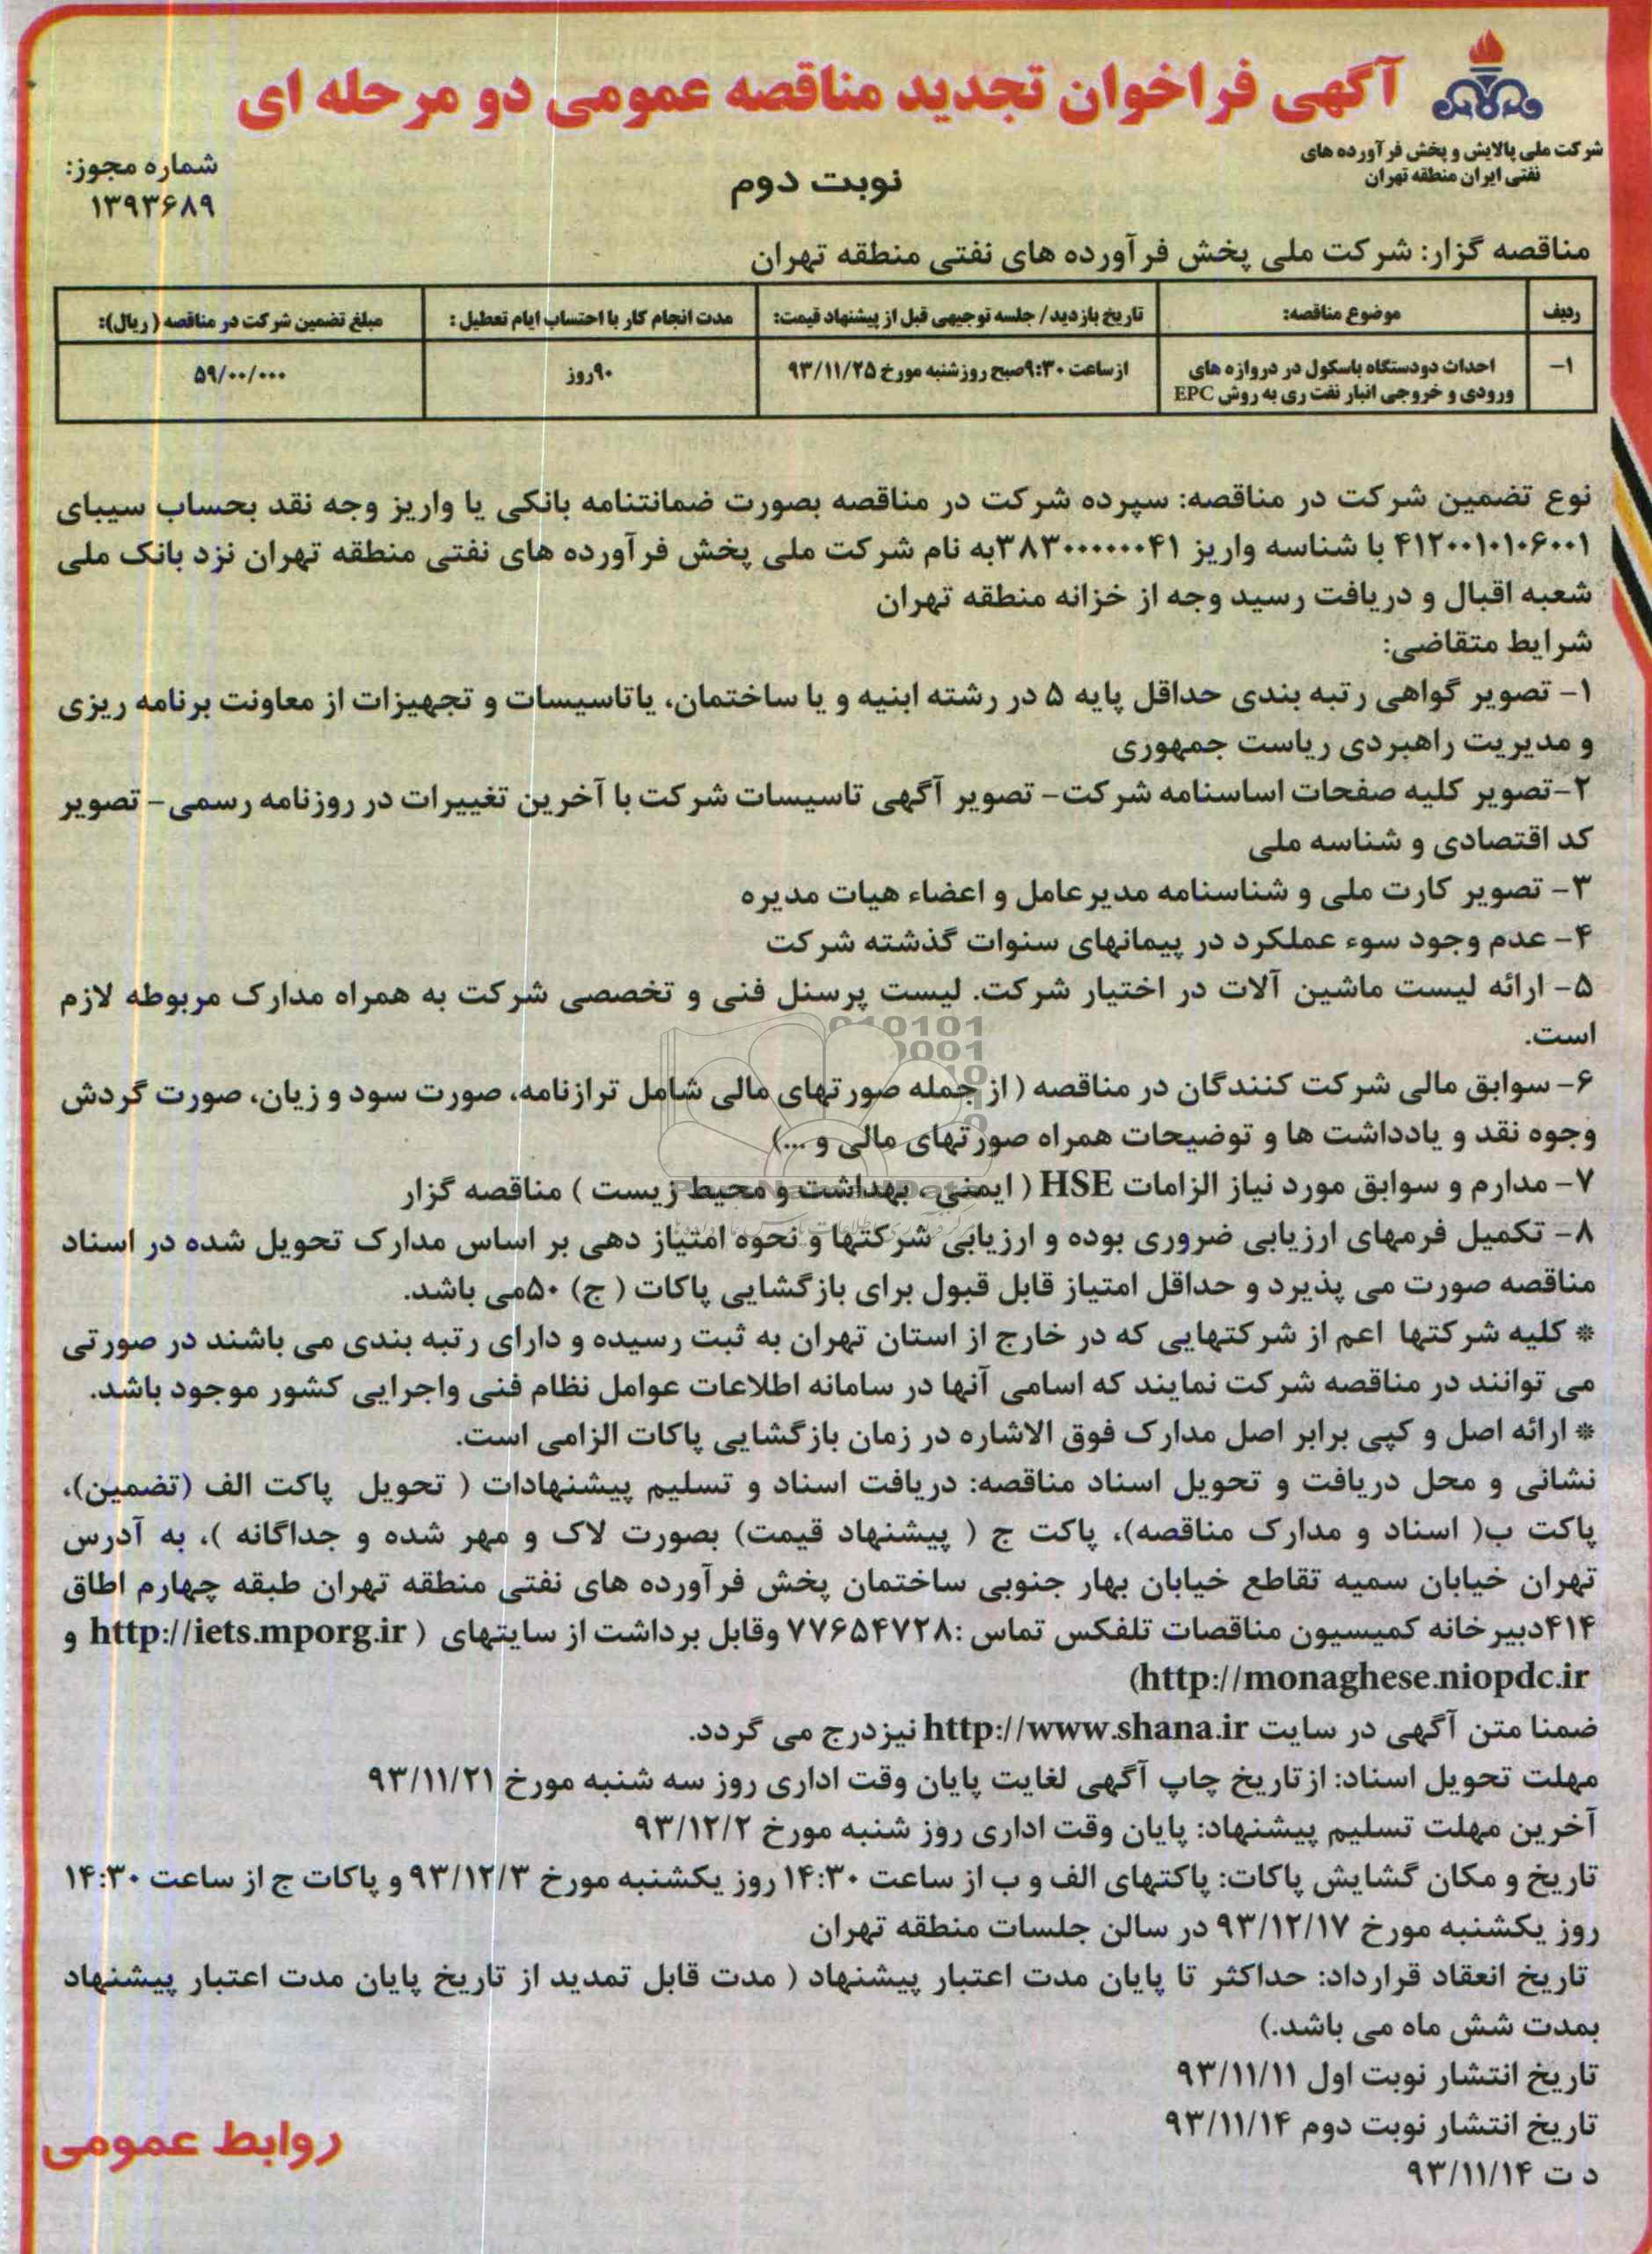 آگهی فراخوان تجدید مناقصه عمومی دو مرحله ای
شرکت ملی پالایش و پخش فرآورده های
نفتی ایران منطقه تهران
نوبت دوم
شماره مجوز:
۱۳۹۳۶۸۹
مناقصه گزار: شرکت ملی پخش فرآورده های نفتی منطقه تهران
ردیف | موضوع مناقصه: | تاریخ بازدید / جلسه توجیهی قبل از پیشنهاد قیمت: | مدت انجام کار با احتساب ایام تعطیل : | مبلغ تضمین شرکت در مناقصه ( ریال):
۱– | احداث دودستگاه باسکول در دروازه های | ازساعت ۹:۳۰صبح روزشنبه مورخ ۹۳/۱۱/۲۵ | ۹۰روز | ۵۹/۰۰/۰۰۰
ورودی و خروجی انبار نفت ری به روش EPC
نوع تضمین شرکت در مناقصه: سپرده شرکت در مناقصه بصورت ضمانتنامه بانکی یا واریز وجه نقد بحساب سیبای
۴۱۲۰۰۱۰۱۰۶۰۰۱ با شناسه واریز ۳۸۳۰۰۰۰۰۰۰۴۱به نام شرکت ملی پخش فرآورده های نفتی منطقه تهران نزد بانک ملی
شعبه اقبال و دریافت رسید وجه از خزانه منطقه تهران
شرایط متقاضی:
۱– تصویر گواهی رتبه بندی حداقل پایه ۵ در رشته ابنیه و یا ساختمان، یاتاسیسات و تجهیزات از معاونت برنامه ریزی
و مدیریت راهبردی ریاست جمهوری
۲–تصویر کلیه صفحات اساسنامه شرکت– تصویر آگهی تاسیسات شرکت با آخرین تغییرات در روزنامه رسمی– تصویر
کد اقتصادی و شناسه ملی
۳– تصویر کارت ملی و شناسنامه مدیرعامل و اعضاء هیات مدیره
۴– عدم وجود سوء عملکرد در پیمانهای سنوات گذشته شرکت
۵– ارائه لیست ماشین آلات در اختیار شرکت. لیست پرسنل فنی و تخصصی شرکت به همراه مدارک مربوطه لازم
است.
۶– سوابق مالی شرکت کنندگان در مناقصه ( از جمله صورتهای مالی شامل ترازنامه، صورت سود و زیان، صورت گردش
وجوه نقد و یادداشت ها و توضیحات همراه صورتهای مالی و ...)
۷– مدارم و سوابق مورد نیاز الزامات HSE ( ایمنی ، بهداشت و محیط زیست ) مناقصه گزار
۸– تکمیل فرمهای ارزیابی ضروری بوده و ارزیابی شرکتها و نحوه امتیاز دهی بر اساس مدارک تحویل شده در اسناد
مناقصه صورت می پذیرد و حداقل امتیاز قابل قبول برای بازگشایی پاکات ( ج) ۵۰می باشد.
* کلیه شرکتها اعم از شرکتهایی که در خارج از استان تهران به ثبت رسیده و دارای رتبه بندی می باشند در صورتی
می توانند در مناقصه شرکت نمایند که اسامی آنها در سامانه اطلاعات عوامل نظام فنی واجرایی کشور موجود باشد.
* ارائه اصل و کپی برابر اصل مدارک فوق الاشاره در زمان بازگشایی پاکات الزامی است.
نشانی و محل دریافت و تحویل اسناد مناقصه: دریافت اسناد و تسلیم پیشنهادات ( تحویل پاکت الف (تضمین)،
پاکت ب( اسناد و مدارک مناقصه)، پاکت ج ( پیشنهاد قیمت) بصورت لاک و مهر شده و جداگانه )، به آدرس
تهران خیابان سمیه تقاطع خیابان بهار جنوبی ساختمان پخش فرآورده های نفتی منطقه تهران طبقه چهارم اطاق
۴۱۴دبیرخانه کمیسیون مناقصات تلفکس تماس :۷۷۶۵۴۷۲۸ وقابل برداشت از سایتهای ( http://iets.mporg.ir و
http://monaghese.niopdc.ir)
ضمنا متن آگهی در سایت http://www.shana.ir نیزدرج می گردد.
مهلت تحویل اسناد: ازتاریخ چاپ آگهی لغایت پایان وقت اداری روز سه شنبه مورخ ۹۳/۱۱/۲۱
آخرین مهلت تسلیم پیشنهاد: پایان وقت اداری روز شنبه مورخ ۹۳/۱۲/۲
تاریخ و مکان گشایش پاکات: پاکتهای الف و ب از ساعت ۱۴:۳۰ روز یکشنبه مورخ ۹۳/۱۲/۳ و پاکات ج از ساعت ۱۴:۳۰
روز یکشنبه مورخ ۹۳/۱۲/۱۷ در سالن جلسات منطقه تهران
تاریخ انعقاد قرارداد: حداکثر تا پایان مدت اعتبار پیشنهاد ( مدت قابل تمدید از تاریخ پایان مدت اعتبار پیشنهاد
بمدت شش ماه می باشد.)
تاریخ انتشار نوبت اول ۹۳/۱۱/۱۱
تاریخ انتشار نوبت دوم ۹۳/۱۱/۱۴
د ت ۹۳/۱۱/۱۴
روابط عمومی